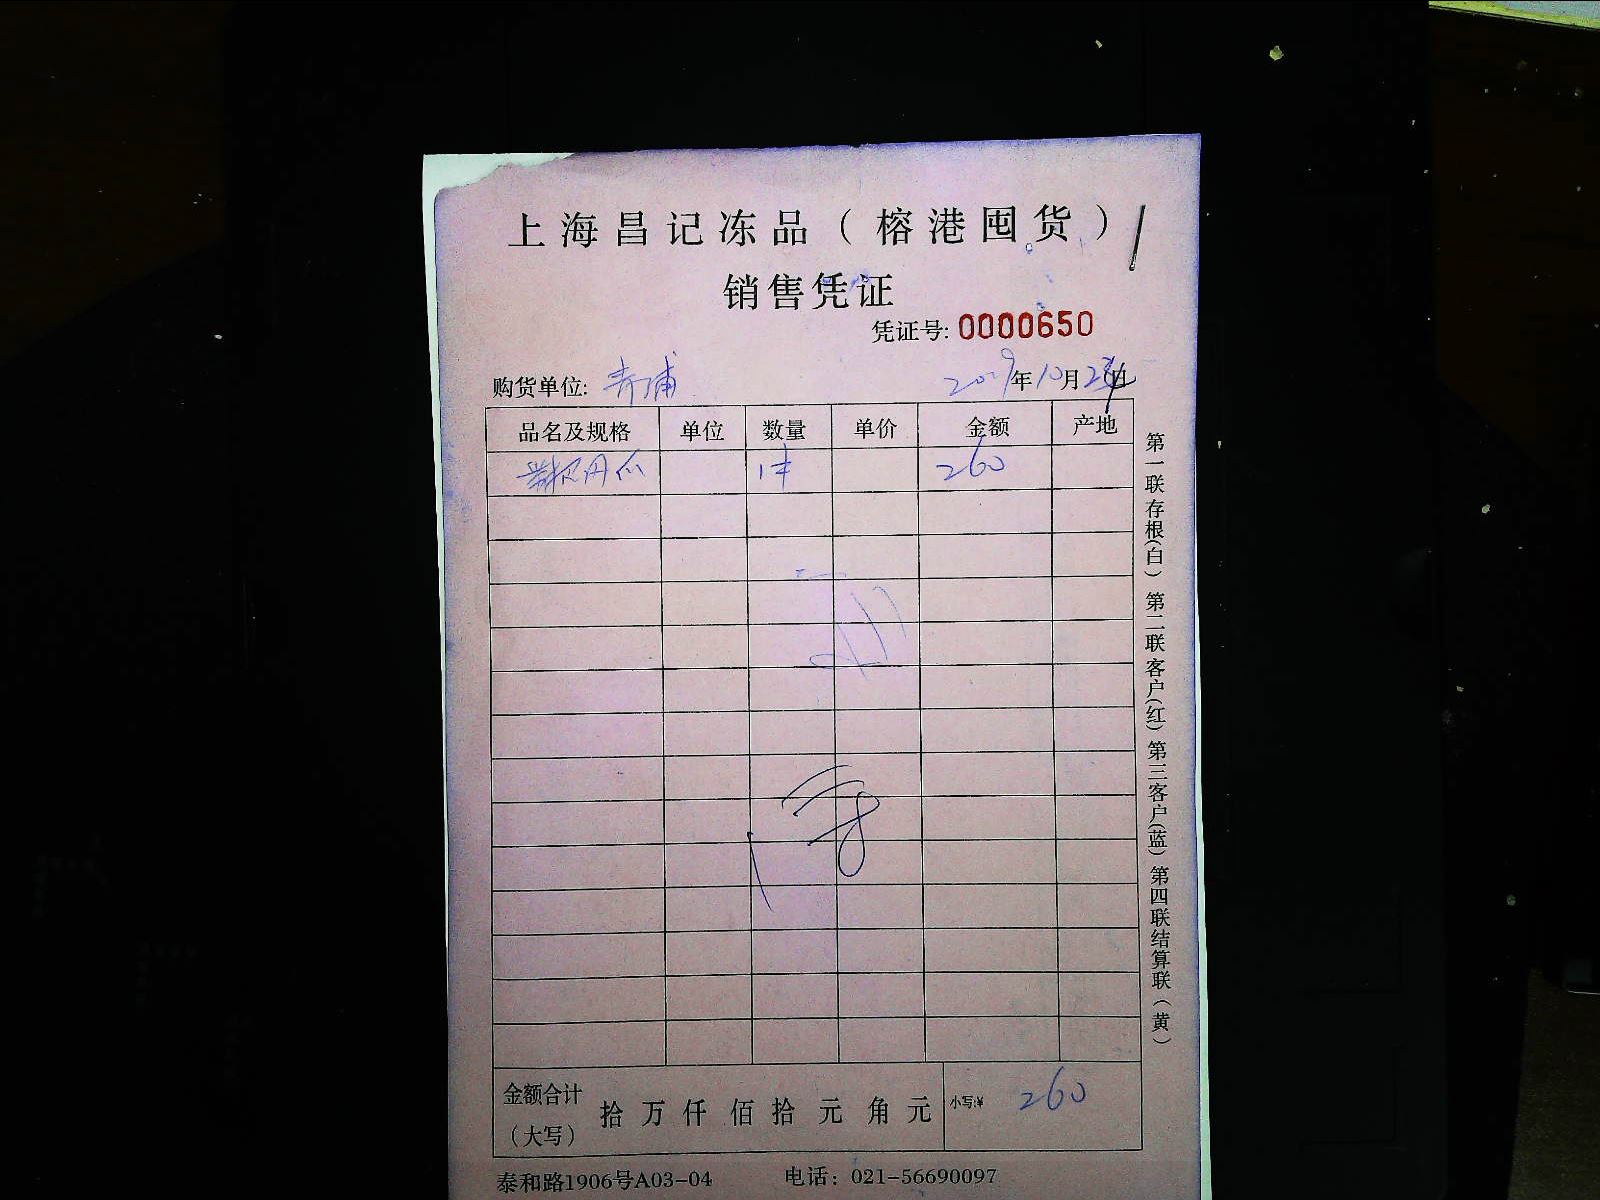 上海昌记冻品（榕港囤货）
销售凭证
凭证号: 0000650
购货单位: 青浦 2019年10月2日
品名及规格 单位 数量 单价 金额 产地
1件 260
金额合计（大写） 拾 万 仟 佰 拾 元 角 元 小写:¥ 260
泰和路1906号A03-04 电话：021-56690097
第一联存根(白) 第二联客户(红) 第三客户(蓝) 第四联结算联(黄)